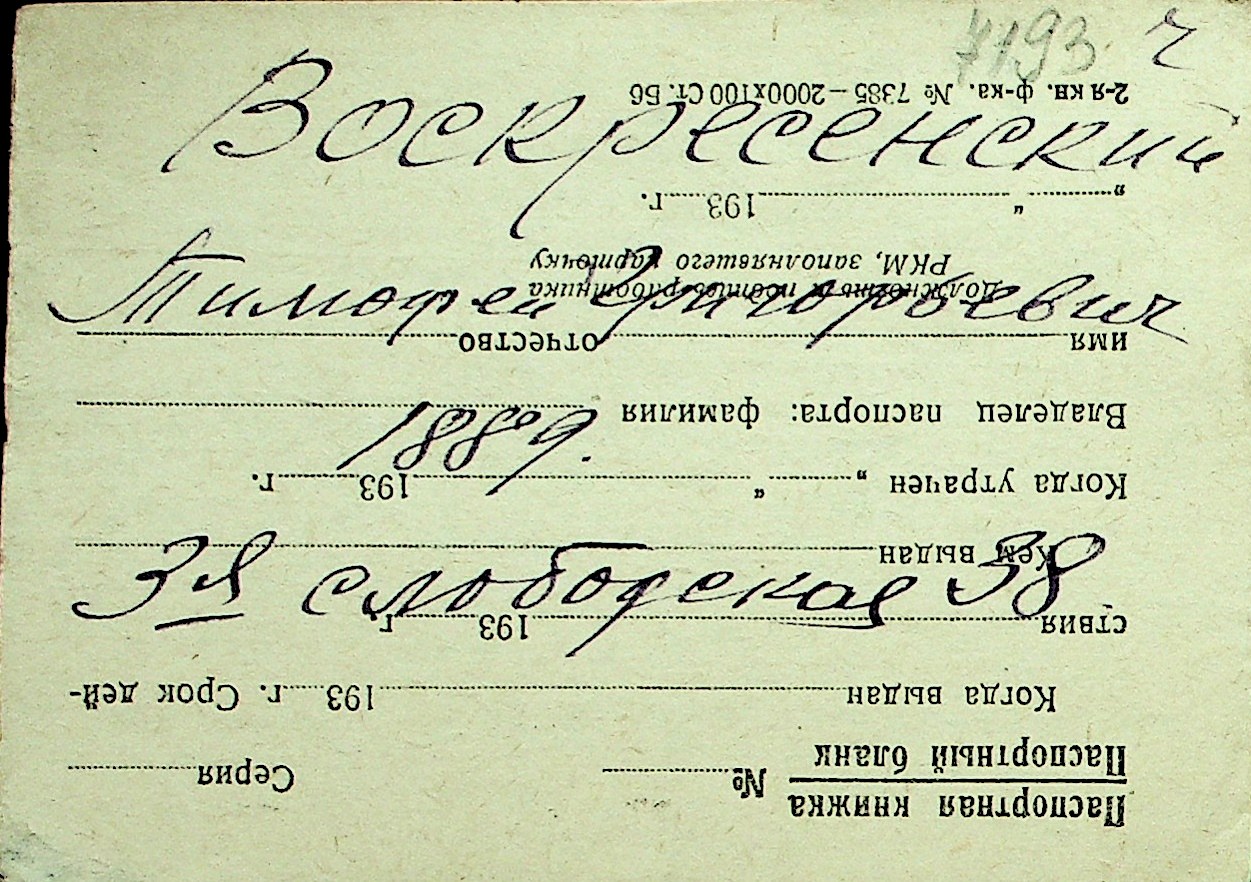 7193 ч
Воскресенский
Тимофей Григорьевич
1889.
3-я слободская 38
Паспортная книжка
Паспортный бланк
№
Серия
Когда выдан 193 г. Срок дей-
ствия 193 г.
Кем выдан
Когда утрачен „ “ 193 г.
Владелец паспорта: фамилия
имя отчество
Должность и подпись работника
РКМ, заполнявшего карточку
„ “ 193 г.
2-я кн. ф-ка. № 7385 — 2000х100 Ст. Б6